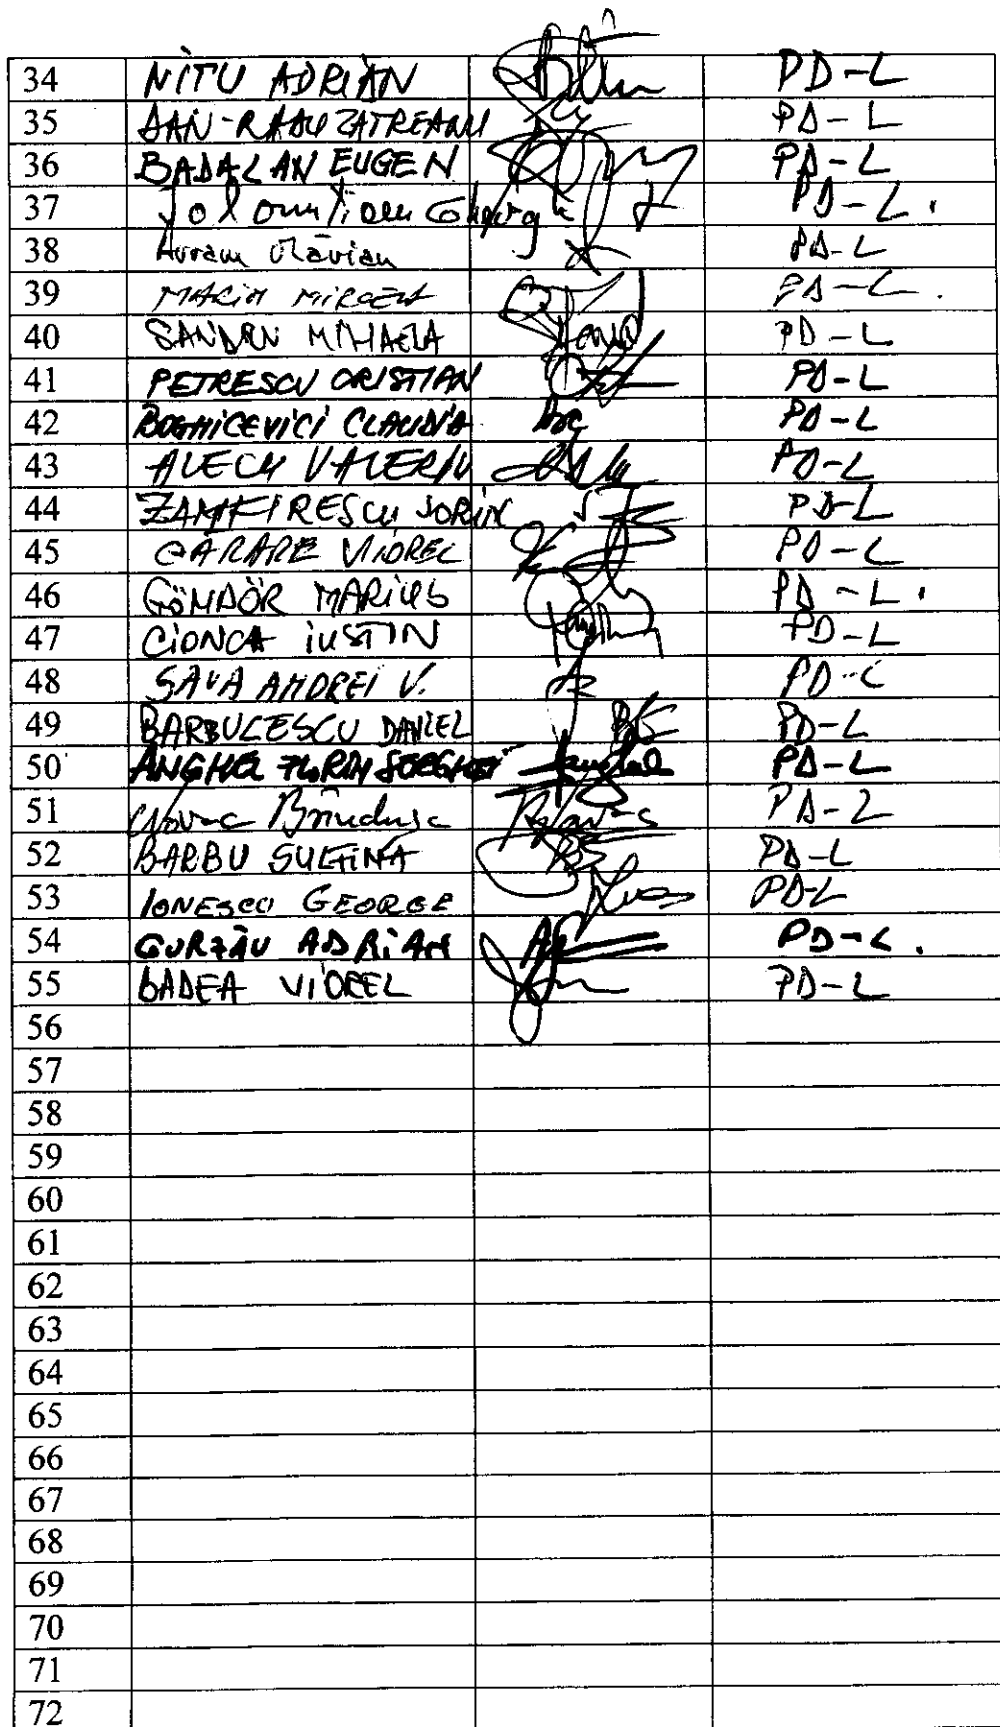 34 NITU ADRIAN PD-L
35 DAN-RADU ZATREANU PD-L
36 BADALAN EUGEN PD-L
37 PD-L.
38 Avram PD-L
39 MARIN MIRCEA PD-L.
40 SANDRU MIHAELA PD-L
41 PETRESCU CRISTIAN PD-L
42 BOGHICEVICI CLAUDIA PD-L
43 ALECU VALERIU PD-L
44 ZAMFIRESCU SORIN PD-L
45 CARARE VIOREL PD-L
46 GÖNDÖR MARIUS PD-L.
47 CIONCA IUSTIN PD-L
48 SAVA ANDREI V. PD-L
49 BARBULESCU DANIEL PD-L
50 ANGHEL FLORIN SERGHEI PD-L
51 PD-L
52 BARBU SULFINA PD-L
53 IONESCU GEORGE PD-L
54 GURZĂU ADRIAN PD-L.
55 BADEA VIOREL PD-L
56
57
58
59
60
61
62
63
64
65
66
67
68
69
70
71
72